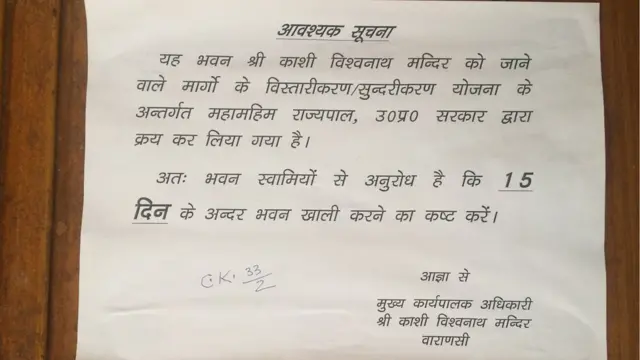 आवश्यक सूचना
यह भवन श्री काशी विश्वनाथ मन्दिर को जाने
वाले मार्गो के विस्तारीकरण/सुन्दरीकरण योजना के
अन्तर्गत महामहिम राज्यपाल, उ०प्र० सरकार द्वारा
क्रय कर लिया गया है।
अतः भवन स्वामियों से अनुरोध है कि 15
दिन के अन्दर भवन खाली करने का कष्ट करें।
C.K. 33/2
आज्ञा से
मुख्य कार्यपालक अधिकारी
श्री काशी विश्वनाथ मन्दिर
वाराणसी